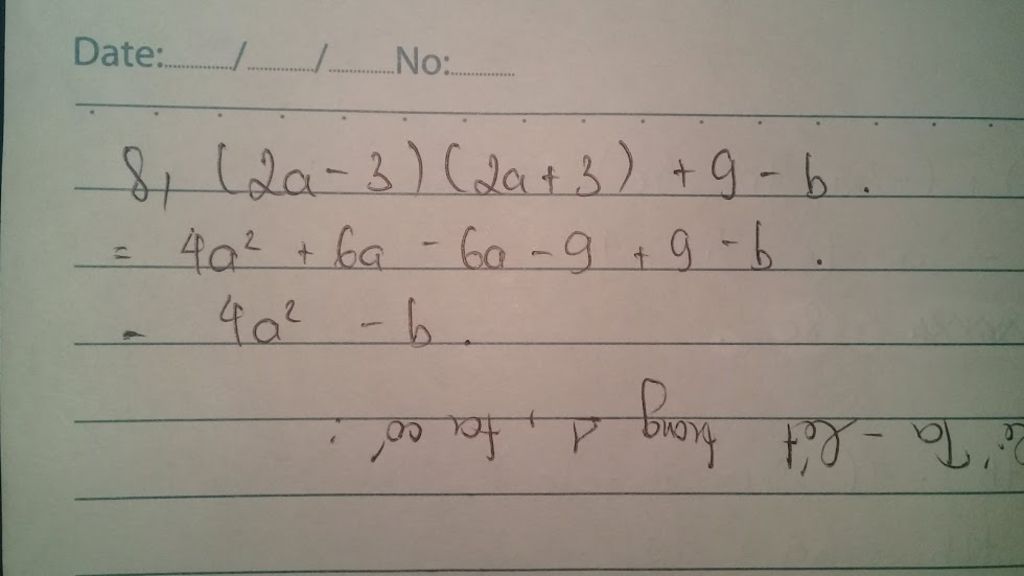 Date: / / No:
8, (2a - 3) (2a + 3) + 9 - b .
= 4a² + 6a - 6a - 9 + 9 - b .
- 4a² - b .
Ta - lét trong 1, ta có :